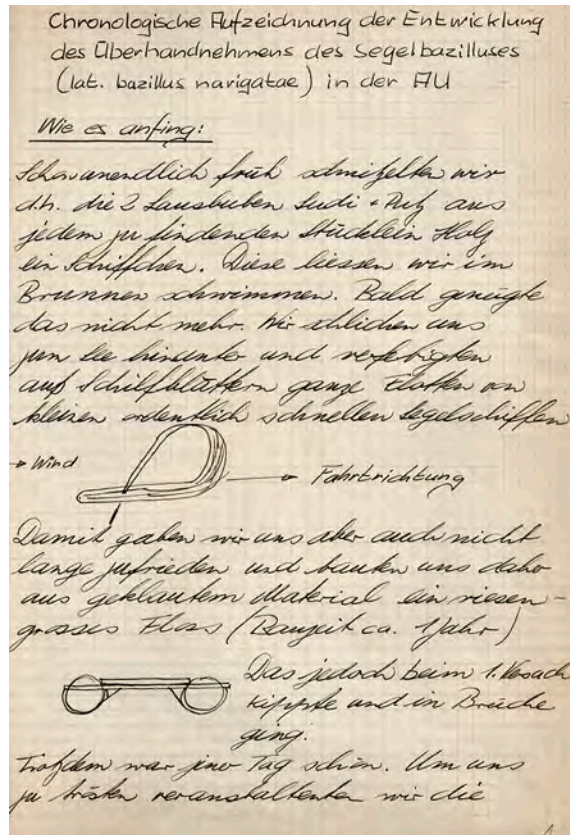 Chronologische Aufzeichnung der Entwicklung
des Überhandnehmens des Segelbazilluses
(lat. bazillus navigatae) in der AU
Wie es anfing:
Schon unendlich früh schnitzelten wir
d.h. die 2 Lausbuben Ludi + Putz aus
jedem zu findenden Stücklein Holz
ein Schiffchen. Diese liessen wir im
Brunnen schwimmen. Bald genügte
das nicht mehr. Wir schlichen uns
zum See hinunter und verfertigten
aus Schilfblättern ganze Flotten von
kleinen ordentlich schnellen Segelschiffen
Wind
Fahrtrichtung
Damit gaben wir uns aber auch nicht
lange zufrieden und bauten uns daher
aus geklautem Material ein riesen-
grosses Floss (Bauzeit ca. 1 Jahr)
Das jedoch beim 1. Versuch
kippte und in Brüche
ging.
Trotzdem war jener Tag schön. Um uns
zu trösten veranstalteten wir die
1